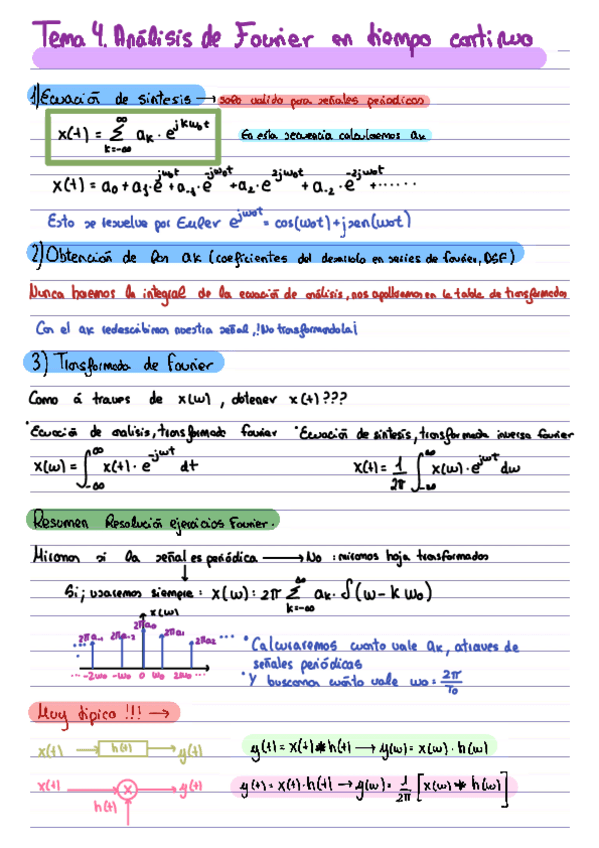 Tema 4. Análisis de Fourier en tiempo continuo
1) Ecuación de síntesis → solo valido para señales periodicas
x(t) = Σ_{k=-∞}^{∞} ak · e^{jkω0t}
En esta secuencia calculamos ak
x(t) = a0 + a1·e^{jω0t} + a-1·e^{-jω0t} + a2·e^{2jω0t} + a-2·e^{-2jω0t} + ......
Esto se resuelve por Euler e^{jω0t} = cos(ω0t) + jsen(ω0t)
2) Obtención de los ak (coeficientes del desarrollo en series de fourier, DSF)
Nunca haremos la integral de la ecuación de análisis, nos apoyaremos en la tabla de transformadas
Con el ak redescribimos nuestra señal, ¡!No transformandola¡
3) Transformada de Fourier
Como á traves de x(ω), obtener x(t)???
· Ecuación de analisis, transformada fourier
· Ecuación de síntesis, transformada inversa fourier
x(ω) = ∫_{-∞}^{∞} x(t) · e^{-jωt} dt
x(t) = 1/2π ∫_{-∞}^{∞} x(ω) · e^{jωt} dω
Resumen Resolución ejercicios Fourier.
Miramos si la señal es periódica → No : miramos hoja transformadas
Si; usaremos siempre : x(ω) = 2π Σ_{k=-∞}^{∞} ak · δ(ω - kω0)
x(ω)
2πa-1 2πa-2 2πa0 2πa1 2πa2 ...
... -2ω0 -ω0 0 ω0 2ω0 ...
· Calcularemos cuanto vale ak, atraves de
señales periódicas
· Y buscamos cuánto vale ω0 = 2π/T0
Muy típico !!! →
x(t) → h(t) → y(t)
y(t) = x(t) * h(t) → y(ω) = x(ω) · h(ω)
x(t) → X → y(t)
h(t)
y(t) = x(t) · h(t) → y(ω) = 1/2π [x(ω) * h(ω)]